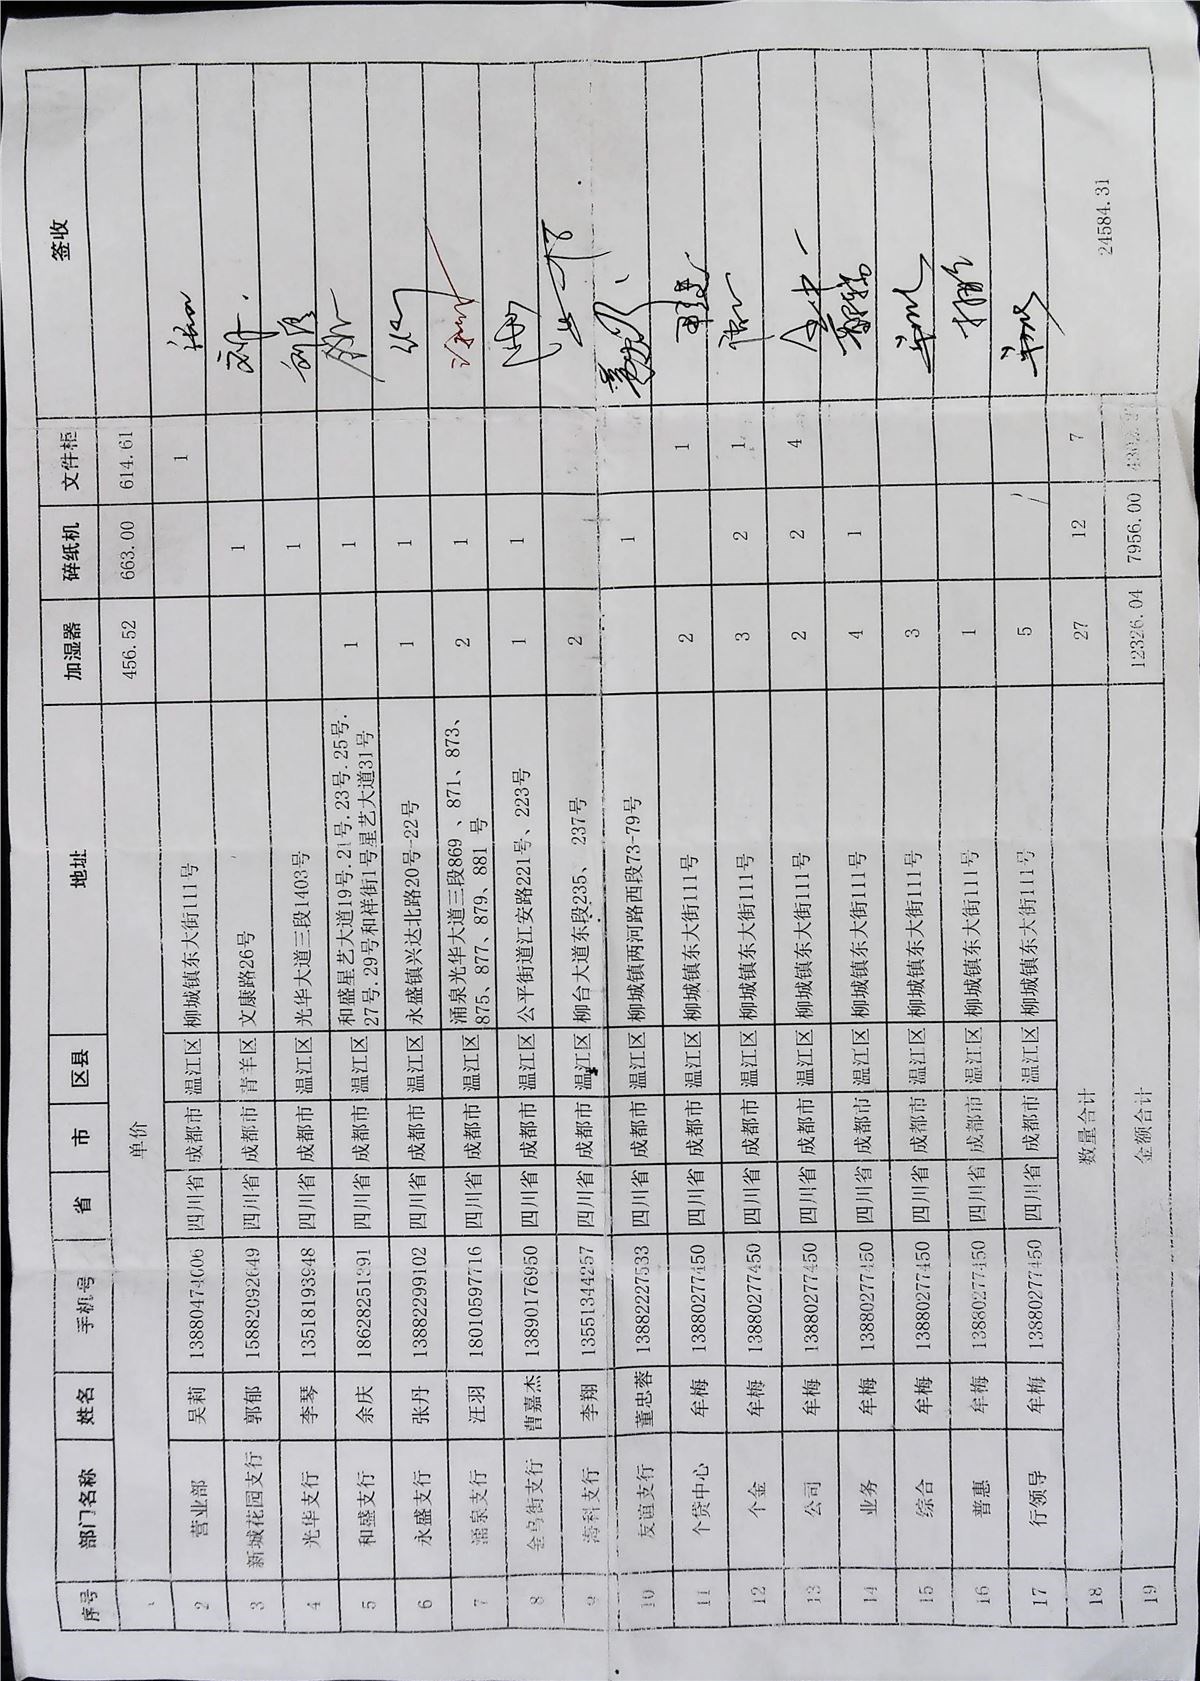 序号 部门名称 姓名 手机号 省 市 区县 地址 加湿器 碎纸机 文件柜 签收
单价 456.52 663.00 614.61
2 营业部 吴莉 13880474606 四川省 成都市 温江区 柳城镇东大街111号 1
3 新城花园支行 郭郁 15882092649 四川省 成都市 青羊区 文康路26号 1
4 光华支行 李琴 13518193948 四川省 成都市 温江区 光华大道三段1403号 1
5 和盛支行 余庆 18628251391 四川省 成都市 温江区 和盛星艺大道19号.21号.23号.25号.
27号.29号和样街1号星艺大道31号 1 1
6 永盛支行 张丹 13882299102 四川省 成都市 温江区 永盛镇兴达北路20号-22号 1 1
7 涌泉支行 汪羽 18010597716 四川省 成都市 温江区 涌泉光华大道三段869 、871、873、
875、877、879、881 号 2 1
8 金乌街支行 曹嘉杰 13890176950 四川省 成都市 温江区 公平街道江安路221号、223号 1 1
9 海科支行 李翔 13551344257 四川省 成都市 温江区 柳台大道东段235、 237号 2
10 友谊支行 董忠蓉 13882227533 四川省 成都市 温江区 柳城镇两河路西段73-79号 1
11 个贷中心 牟梅 13880277450 四川省 成都市 温江区 柳城镇东大街111号 2 1
12 个金 牟梅 13880277450 四川省 成都市 温江区 柳城镇东大街111号 3 2 1
13 公司 牟梅 13880277450 四川省 成都市 温江区 柳城镇东大街111号 2 2 4
14 业务 牟梅 13880277450 四川省 成都市 温江区 柳城镇东大街111号 4 1
15 综合 牟梅 13880277450 四川省 成都市 温江区 柳城镇东大街111号 3
16 普惠 牟梅 13880277450 四川省 成都市 温江区 柳城镇东大街111号 1
17 行领导 牟梅 13880277450 四川省 成都市 温江区 柳城镇东大街111号 5
18 数量合计 27 12 7
19 金额合计 12326.04 7956.00
24584.31